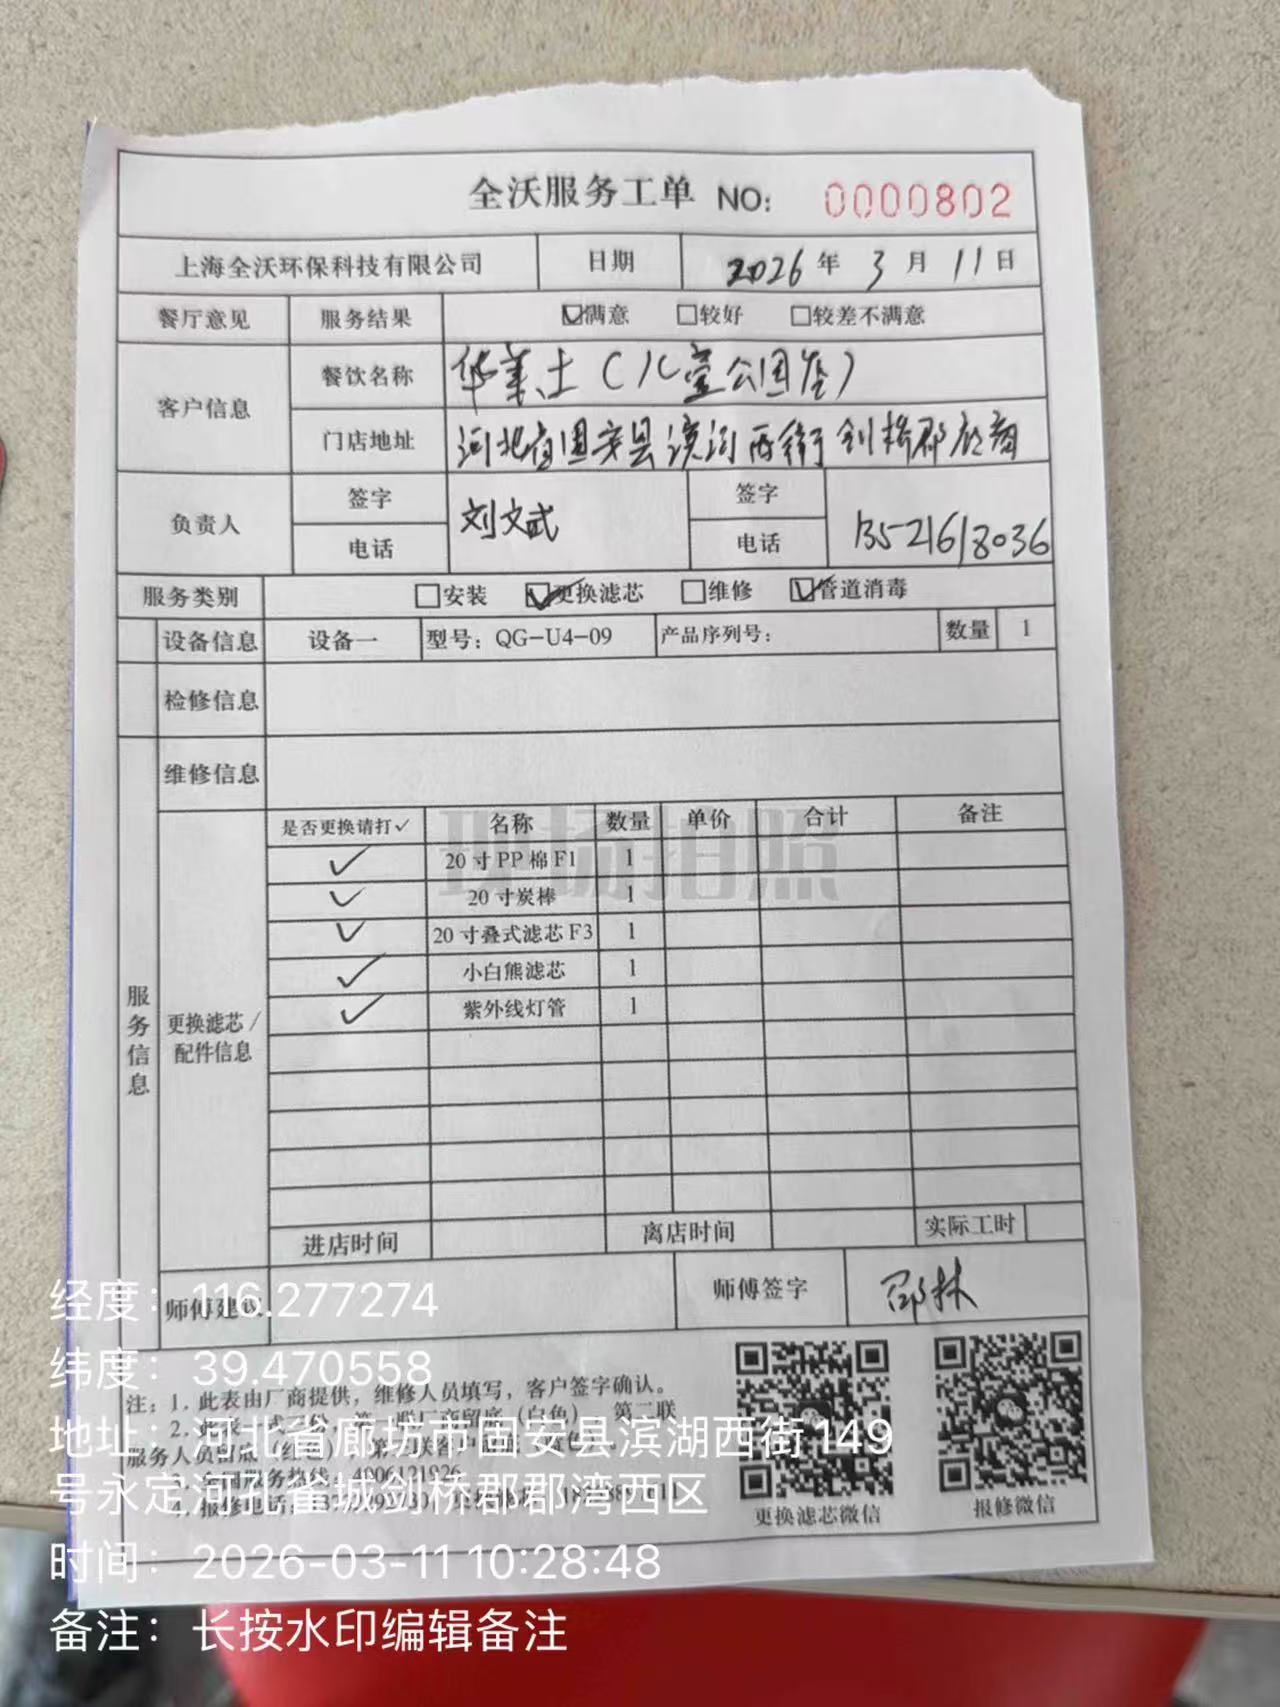 全沃服务工单 NO: 0000802
上海全沃环保科技有限公司 日期 2026年 3月 11日
餐厅意见 服务结果 ☑满意 □较好 □较差不满意
客户信息 餐饮名称 华莱士(儿童公园店)
门店地址 河北省固安县滨河西街剑桥郡底商
负责人 签字 刘文武 签字
电话 电话 13521618036
服务类别 □安装 ☑更换滤芯 □维修 ☑管道消毒
设备信息 设备一 型号: QG-U4-09 产品序列号: 数量 1
检修信息
维修信息
现场拍照
是否更换请打✓ 名称 数量 单价 合计 备注
✓ 20寸PP棉F1 1
✓ 20寸炭棒 1
✓ 20寸叠式滤芯F3 1
✓ 小白熊滤芯 1
✓ 紫外线灯管 1
服务信息
更换滤芯/
配件信息
进店时间 离店时间 实际工时
师傅建议 师傅签字 邵林
注: 1. 此表由厂商提供, 维修人员填写, 客户签字确认。
2. (白色), 第二联
服务人员留底
3. 全国服务热线: 4006121926
4. 报修电话:
更换滤芯微信 报修微信
经度: 116.277274
纬度: 39.470558
地址: 河北省廊坊市固安县滨湖西街149
号永定河孔雀城剑桥郡郡湾西区
时间: 2026-03-11 10:28:48
备注: 长按水印编辑备注